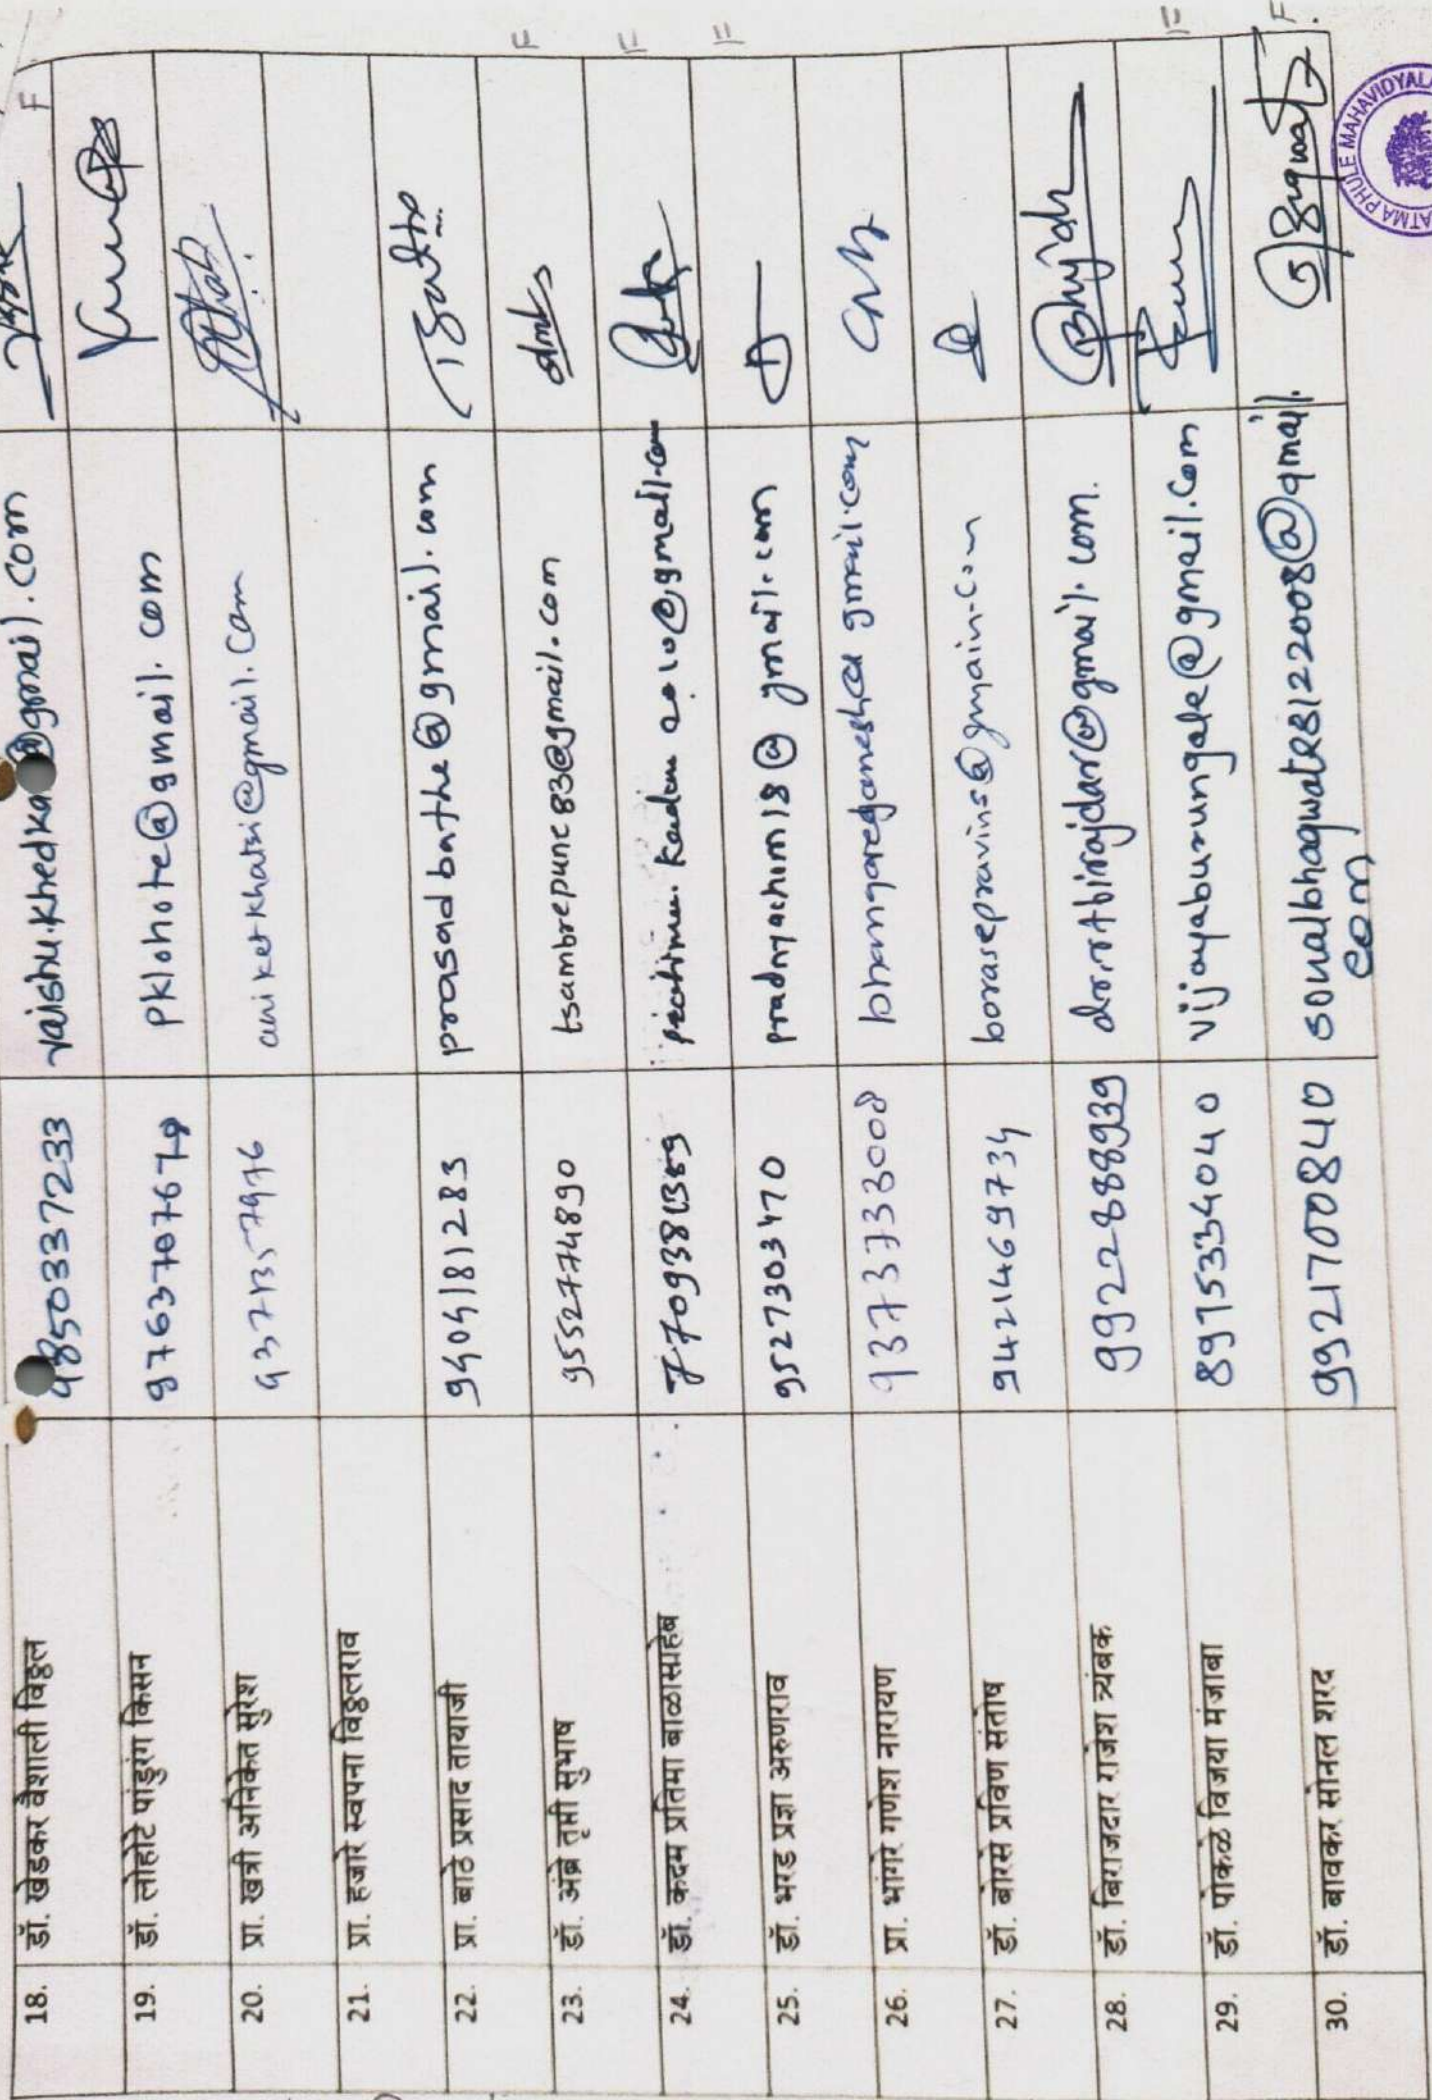 18. डॉ. खेडकर वैशाली विठ्ठल 9850337233 vaishu.khedka@gmail.com F
19. डॉ. लोहोटे पांडुरंग किसन pklohote@gmail.com
20. प्रा. खत्री अनिकेत सुरेश aniketkhatri@gmail.com
21. प्रा. हजारे स्वपना विठ्ठलराव
22. प्रा. बाठे प्रसाद तायाजी 9404181283 prasadbathe@gmail.com
23. डॉ. अंब्रे तृप्ती सुभाष 9552774890 tsambrepune83@gmail.com F
24. डॉ. कदम प्रतिमा बाळासाहेब F
25. डॉ. भरड प्रज्ञा अरुणराव 9527303470 pradnyachim18@gmail.com F
26. प्रा. भांगरे गणेश नारायण 9373733008
27. डॉ. बोरसे प्रविण संतोष 9421469734
28. डॉ. बिराजदार राजेश त्र्यंबक 9922888939 dr.rtbirajdar@gmail.com.
29. डॉ. पोकळे विजया मंजाबा 8975334040 vijayaburungale@gmail.com F
30. डॉ. बावकर सोनल शरद 9921700840 sonalbhagwat28122008@gmail. F
com
ATMA PHULE MAHAVIDYALA